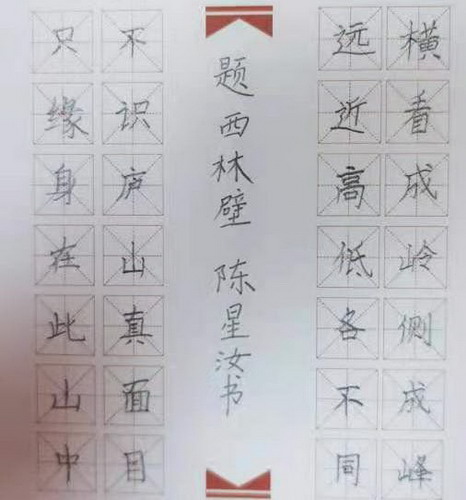 横看成岭侧成峰
远近高低各不同
题西林壁 陈星汝书
不识庐山真面目
只缘身在此山中